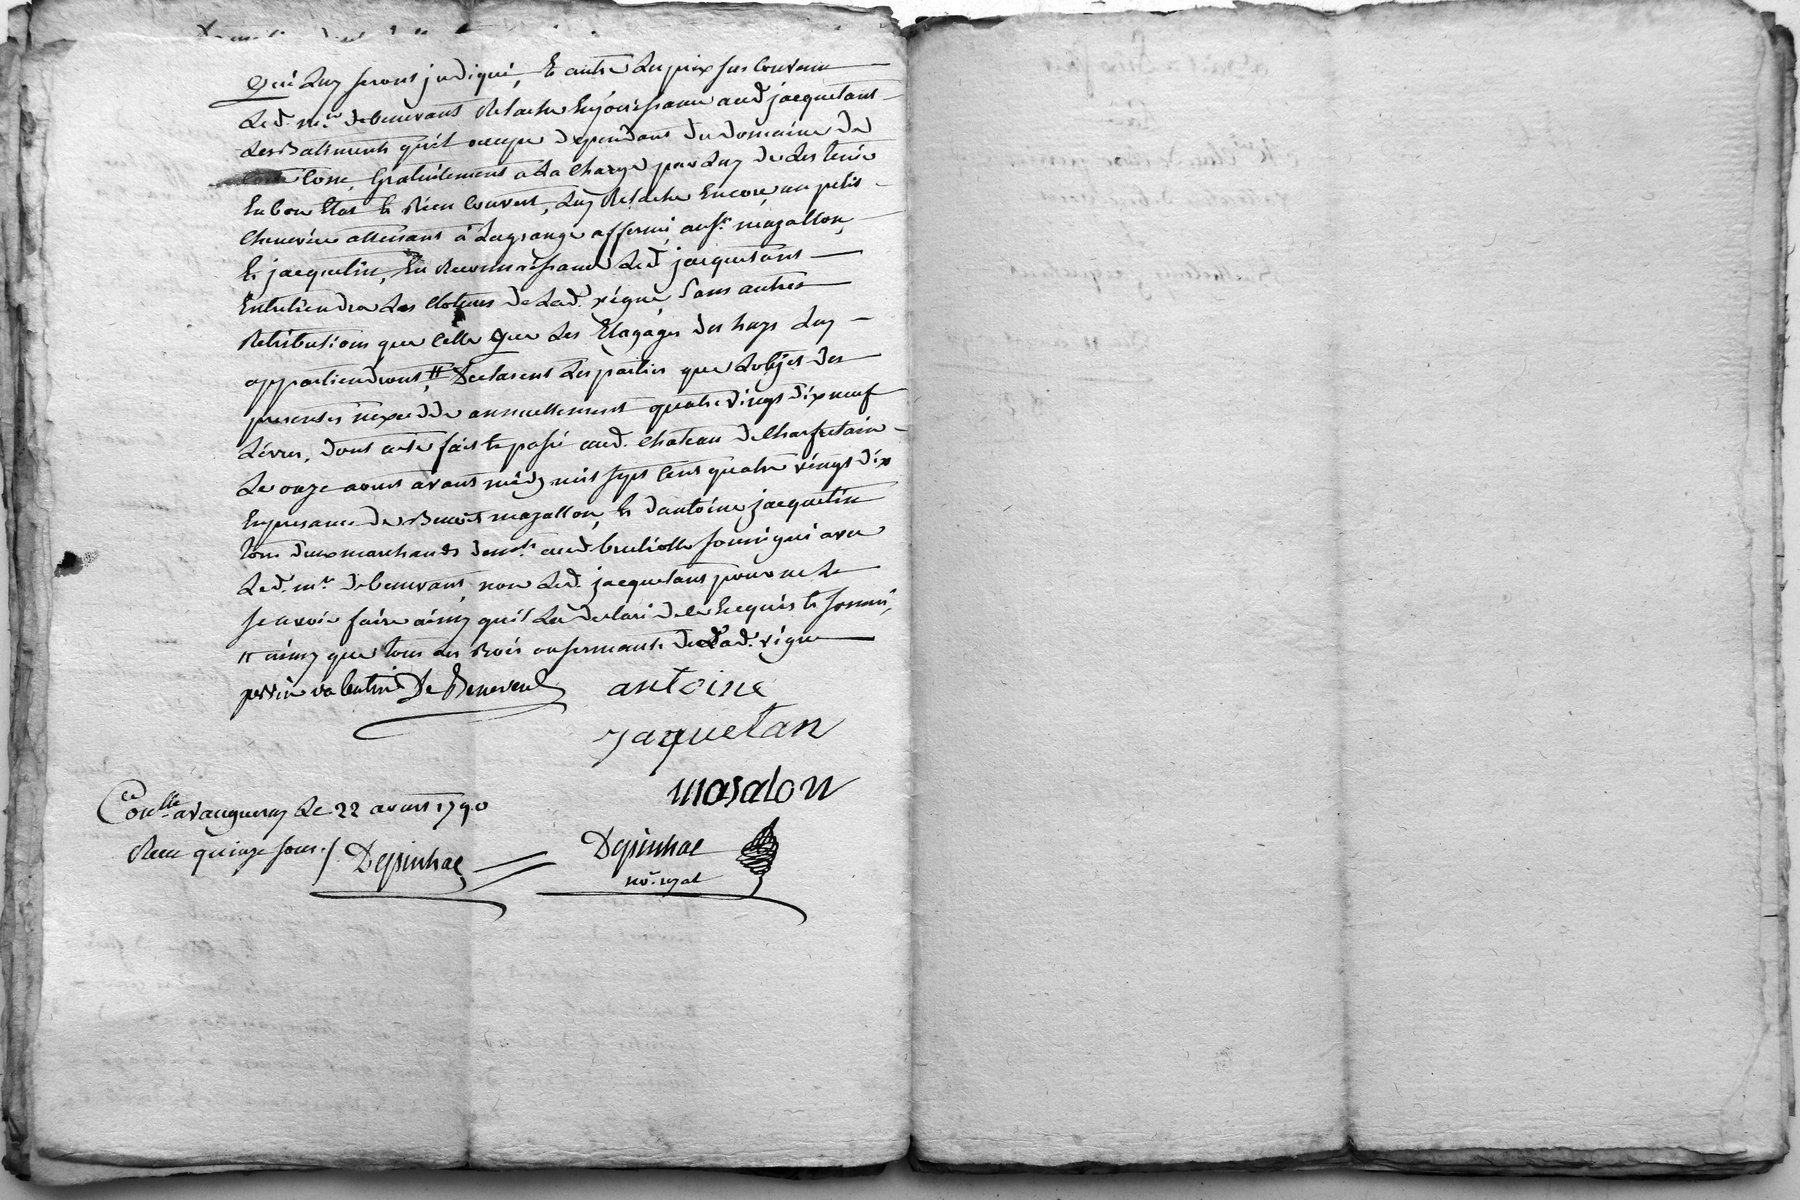 qui luy seront jndiqué, & outre du prix sus convenu
Led. mr. debenevant Relache Enjouissance aud jacquetant
Les Batiments qu'il occupe dependans du domaine de
Cone, Gratuitement a la charge par luy de Les tenir
En bon Etat & Bien Couvert, Luy Relache Encore un petit
Chenevier attenant à La grange affermé, au sr. magallon,
& jacquetin, En Reconnoissance Led. jacquetant
Entretiendra Les Clotures de Lad. vigne, Sans autres
Retributions que celle que Les Elagages des hays Luy
appartiendront, # Declarent Les parties que L'objet des
presentes n'excedde annuellement quatre vingt dix neuf
Livres, dont acte fait & passé aud. chateau de Charfetain
Le onze aoust avant midy mil sept Cent quatre vingt dix
En presence de Benoit magallon, & d'antoine jacquetin
tous deux marchands aud. brulliolle soussignés avec
Led. mr. debenevant, non Led. jacquetant pour ne Le
scavoir faire ainsy qu'il La declaré de ce Enquis & sommé,
# ainsy que tous Les Bois de Lad. vigne
De Benevent antoine
jaquetan
masalon
Con.lle a vaugneray Le 22 aoust 1790
Recu quinze sous. / Depinhac Depinhac
no.re royal